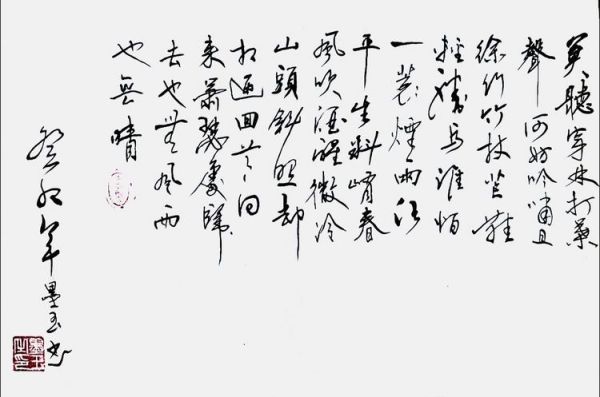 莫聽穿林打葉
聲何妨吟嘯且
徐行竹杖芒鞋
輕勝馬誰怕
一蓑煙雨任
平生料峭春
風吹酒醒微冷
山頭斜照却
相迎回首向
来蕭瑟處歸
去也無風雨
也無晴
癸巳年墨玉书